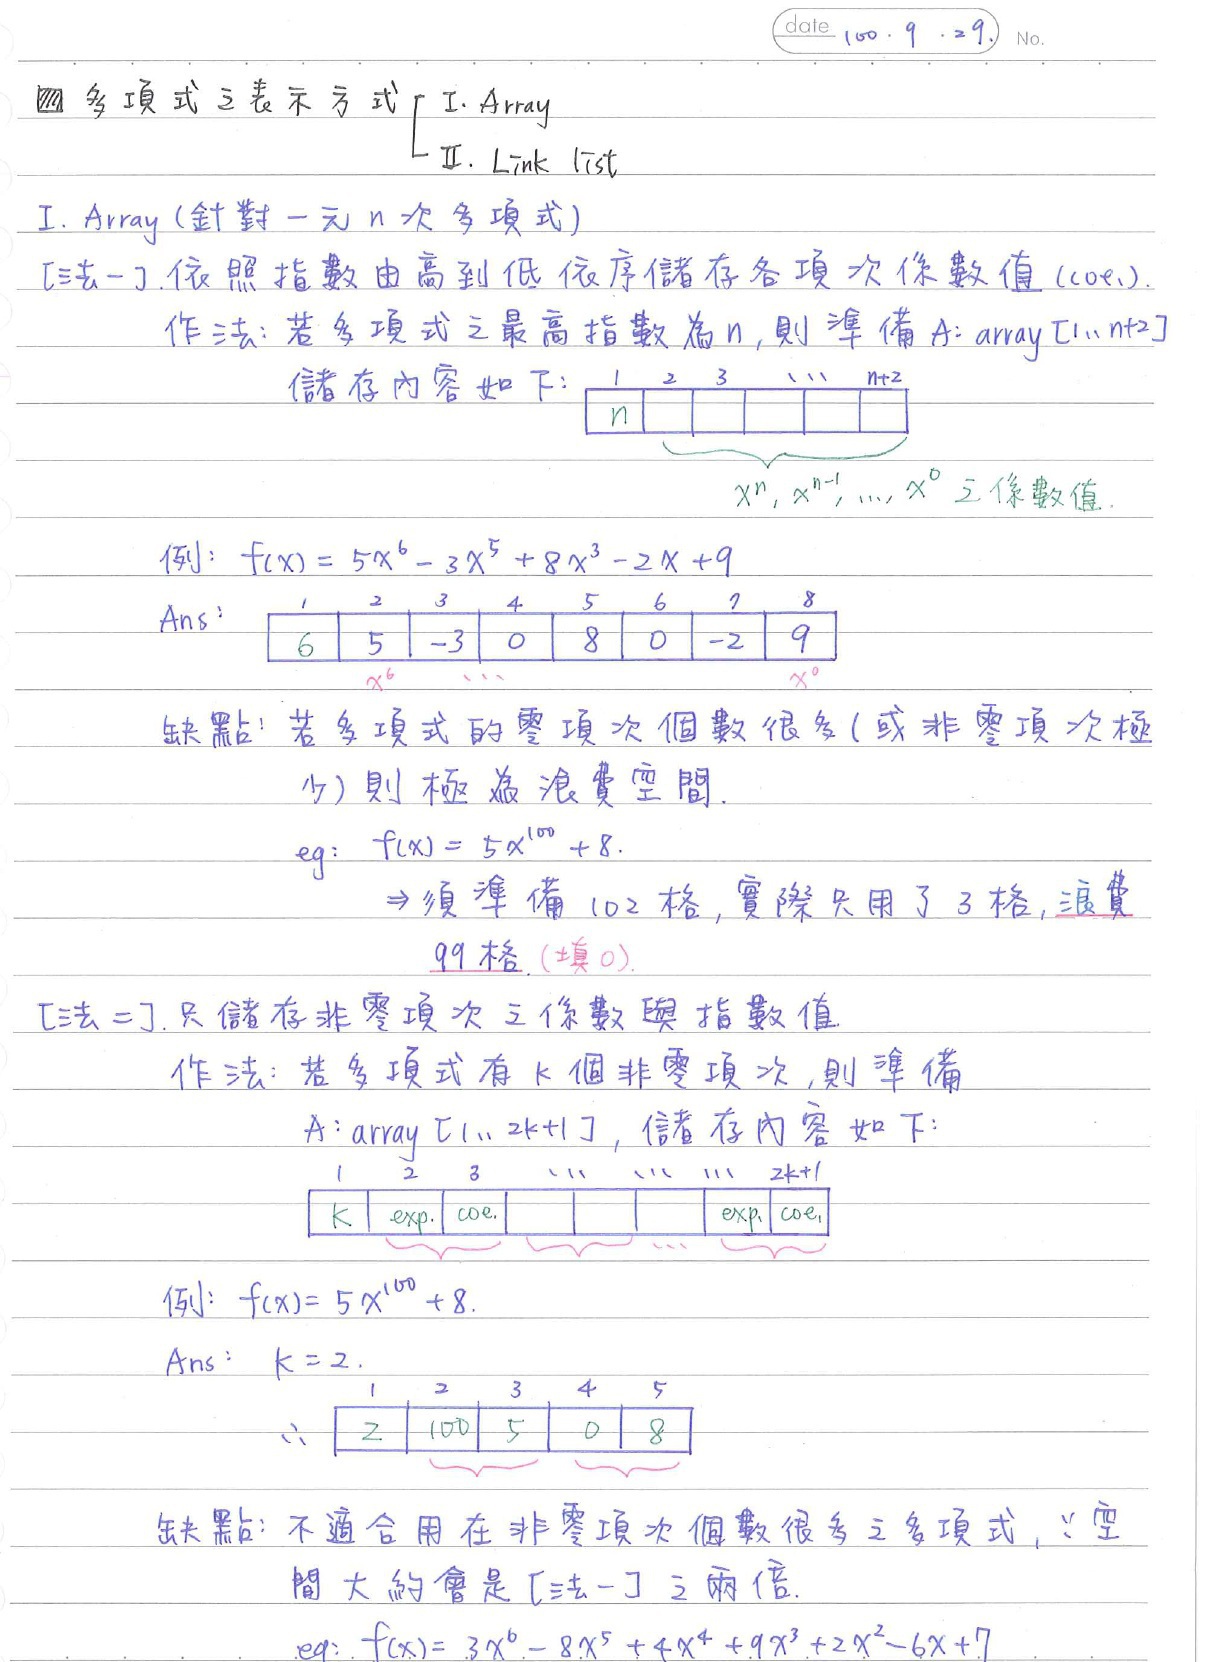 date 100.9.29. No.
多項式之表示方式 I. Array
II. Link list
I. Array (針對一元n次多項式)
[法一]. 依照指數由高到低依序儲存各項次係數值 (coe.).
作法: 若多項式之最高指數為n, 則準備A: array [1..n+2]
儲存內容如下: 1 2 3 ... n+2
n
xⁿ, xⁿ⁻¹, ..., x⁰ 之係數值.
例: f(x) = 5x⁶ - 3x⁵ + 8x³ - 2x + 9
Ans: 1 2 3 4 5 6 7 8
6 5 -3 0 8 0 -2 9
x⁶ ... x⁰
缺點: 若多項式的零項次個數很多 (或非零項次極
少) 則極為浪費空間.
eg: f(x) = 5x¹⁰⁰ + 8.
⇒ 須準備102格, 實際只用了3格, 浪費
99格 (填0).
[法二]. 只儲存非零項次之係數與指數值
作法: 若多項式有k個非零項次, 則準備
A: array [1.. 2k+1], 儲存內容如下:
1 2 3 ... ... ... 2k+1
k exp. coe. exp. coe.
...
例: f(x) = 5x¹⁰⁰ + 8.
Ans: k = 2.
1 2 3 4 5
∴ 2 100 5 0 8
缺點: 不適合用在非零項次個數很多之多項式, ∵空
間大約會是[法一]之兩倍.
eg: f(x) = 3x⁶ - 8x⁵ + 4x⁴ + 9x³ + 2x² - 6x + 7